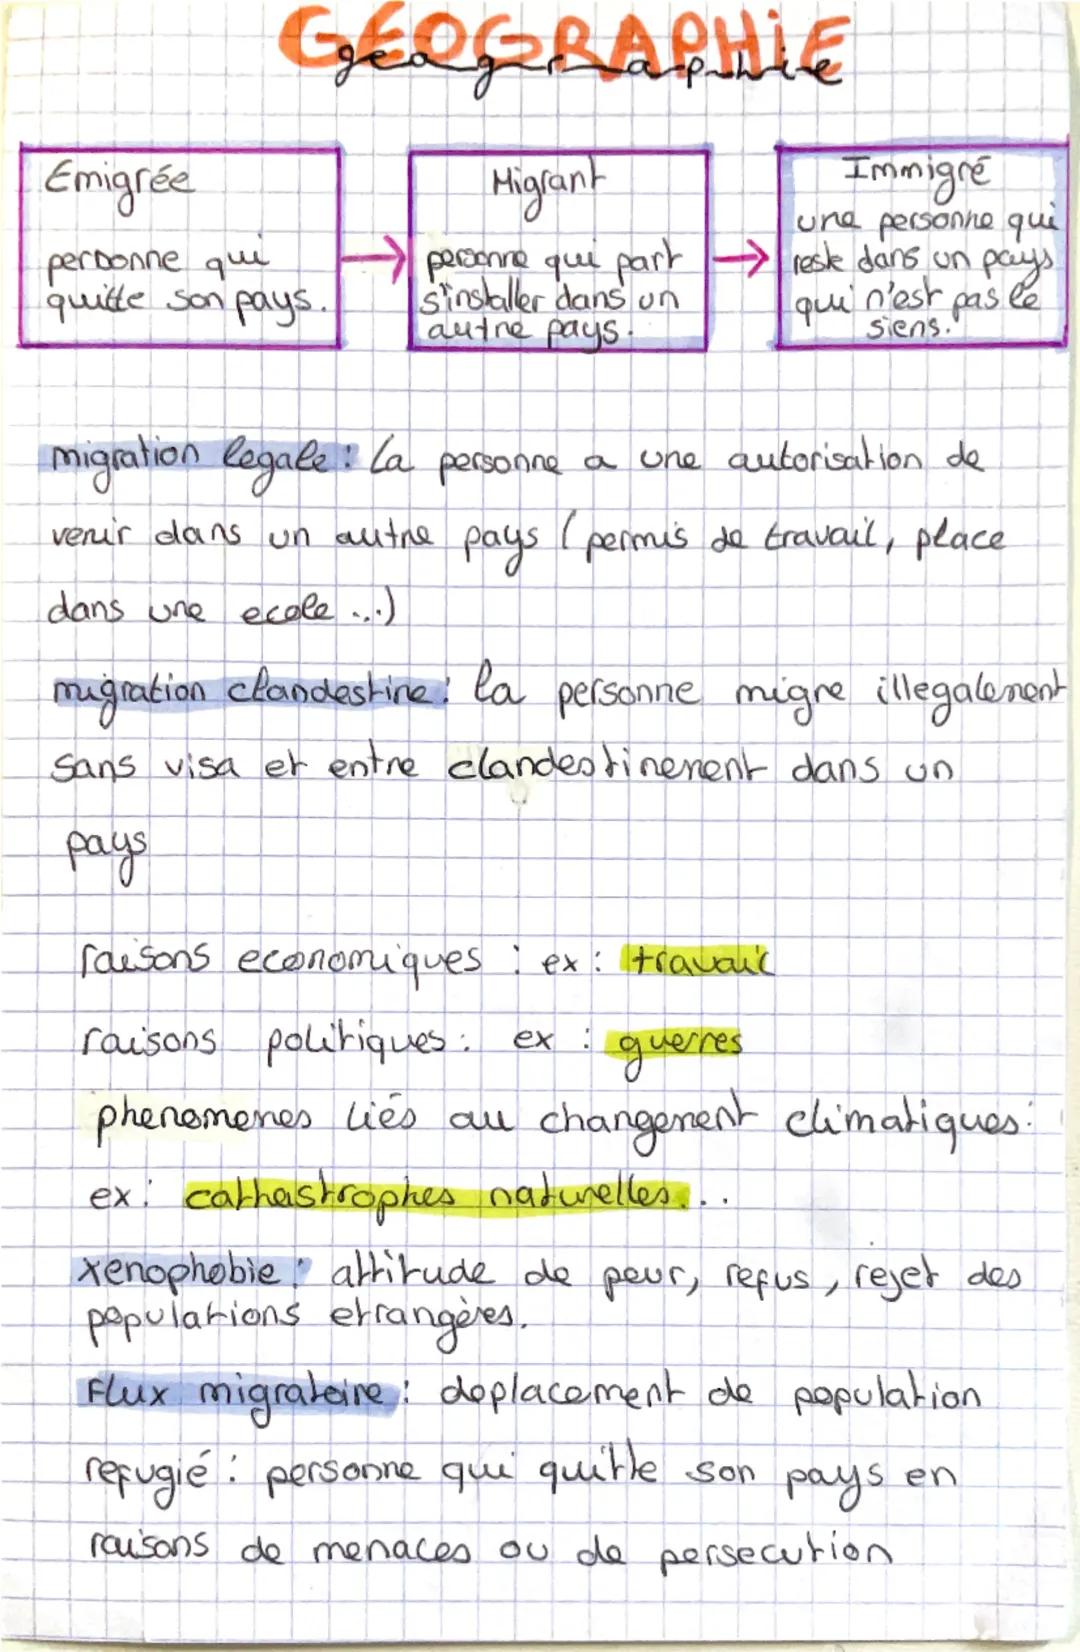 GÉOGRAPHiE
géographie
Émigrée
personne qui
quitte son pays.
Migrant
personne qui part
s'installer dans un
autre pays.
Immigré
une personne qui
reste dans un pays
qui n'est pas le
siens.
migration legale : La personne a une autorisation de
venir dans un autre pays (permis de travail, place
dans une ecole ...)
migration clandestine : la personne migre illegalement
sans visa et entre clandestinement dans un
pays
raisons economiques : ex : travail
raisons politiques : ex : guerres
phenomenes liés au changement climatiques :
ex : cathastrophes naturelles...
xenophobie : attitude de peur, refus, rejet des
populations etrangères.
Flux migratoire : deplacement de population
refugié : personne qui quitte son pays en
raisons de menaces ou de persecution